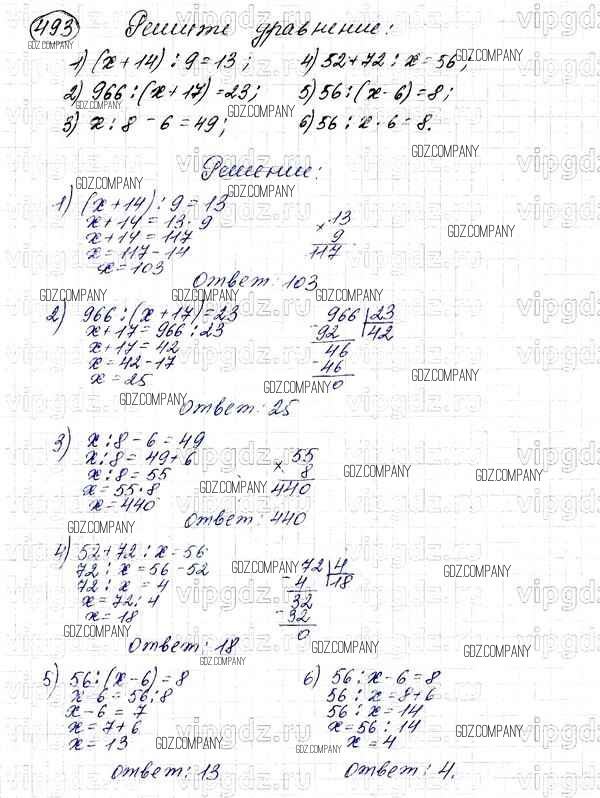 493 Решите уравнение:
1) (x+14) : 9 = 13; 4) 52+72 : x = 56;
2) 966 : (x+17) = 23; 5) 56 : (x-6) = 8;
3) x : 8 - 6 = 49; 6) 56 : x - 6 = 8.
Решение:
1) (x+14) : 9 = 13
x+14 = 13 · 9
x+14 = 117
x = 117-14
x = 103
× 13
9
117
Ответ: 103
2) 966 : (x+17) = 23
x+17 = 966 : 23
x+17 = 42
x = 42-17
x = 25
966 | 23
- 92 | 42
46
- 46
0
Ответ: 25
3) x : 8 - 6 = 49
x : 8 = 49+6
x : 8 = 55
x = 55 · 8
x = 440
× 55
8
440
Ответ: 440
4) 52+72 : x = 56
72 : x = 56-52
72 : x = 4
x = 72 : 4
x = 18
- 72 | 4
4 | 18
32
- 32
0
Ответ: 18
5) 56 : (x-6) = 8
x-6 = 56 : 8
x-6 = 7
x = 7+6
x = 13
Ответ: 13
6) 56 : x - 6 = 8
56 : x = 8+6
56 : x = 14
x = 56 : 14
x = 4
Ответ: 4.
GDZ.COMPANY
vipgdz.ru